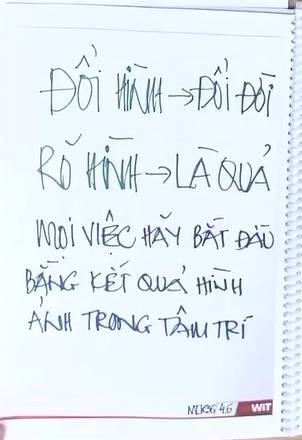 ĐỔI HÌNH → ĐỔI ĐỜI
RÕ HÌNH → LÀ QUẢ
MỌI VIỆC HÃY BẮT ĐẦU
BẰNG KẾT QUẢ HÌNH
ẢNH TRONG TÂM TRÍ
WIT